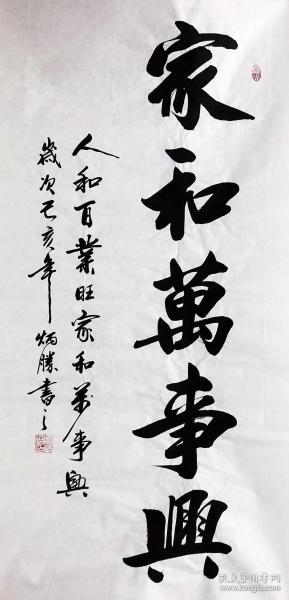 家和萬事興
人和百業旺家和万事興
歲次己亥年炳勝書之
孔夫子旧书网
www.kongfz.com